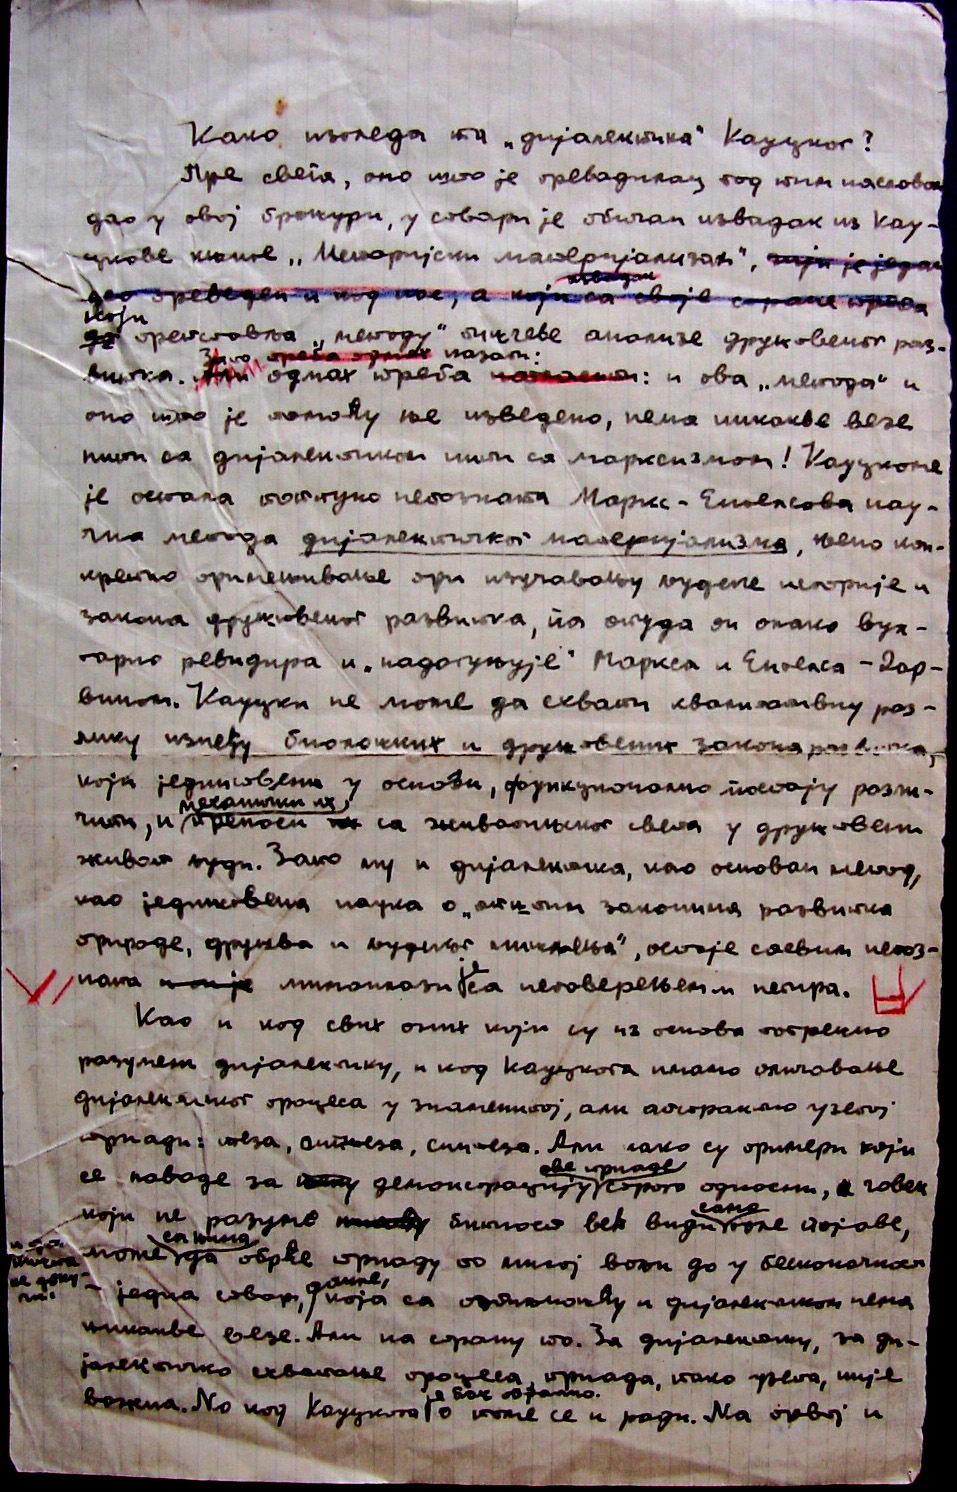 Како изгледа та „дијалектика“ Кауцког?
Пре свега, оно што је преводилац под тим насловом
дао у овој брошури, у ствари је обичан извадак из Кау-
цкове књиге „Историјски материјализам“, чији је један
део преведен и код нас, а који са своје стране треба
који
да претставља „методу“ његове анализе друштвеног раз-
Зато треба одмах казати:
витка. одмах треба : и ова „метода“ и
оно што је помоћу ње изведено, нема никакве везе
нити са дијалектиком нити са марксизмом! Кауцкоме
је остала потпуно непозната Маркс-Енгелсова нау-
чна метода дијалектичког материјализма, њено кон-
кретно примењивање при изучавању људске историје и
закона друштвеног развитка, па отуда он онако вул-
гарно ревидира и „надопуњује“ Маркса и Енгелса – Дар-
вином. Кауцки не може да схвати квалитативну раз-
лику између биолошких и друштвених закона развитка,
који јединствени у основи, функционално постају разли-
механички их
чити, и преноси их са животињског света у друштвени
живот људи. Зато му и дијалектика, као основни метод,
као јединствена наука о „општим законима развитка
природе, друштва и људског мишљења“, остаје сасвим непоз-
ната и он је мимоилази са неповерењем и негира.
Као и код свих оних који су из основа погрешно
разумели дијалектику, и код Кауцкога имамо оличавање
дијалектичког процеса у знаменитој, али апстрактно узетој
тријади: теза, антитеза, синтеза. Али иако су примери који
ове тријаде
се наводе за демонстрацију строго односни, човек
саме
који не разуме бит ствари већ види појаве,
може да обрће тријаду по милој вољи до у бесконачност
даље,
– једна ствар, која са и дијалектиком нема
никакве везе. Али на страну то. За дијалектику, за ди-
јалектичко схватање процеса, тријада, тако узета, није
је баш обратно.
важна. Но код Кауцкога о томе се и ради. На првој и